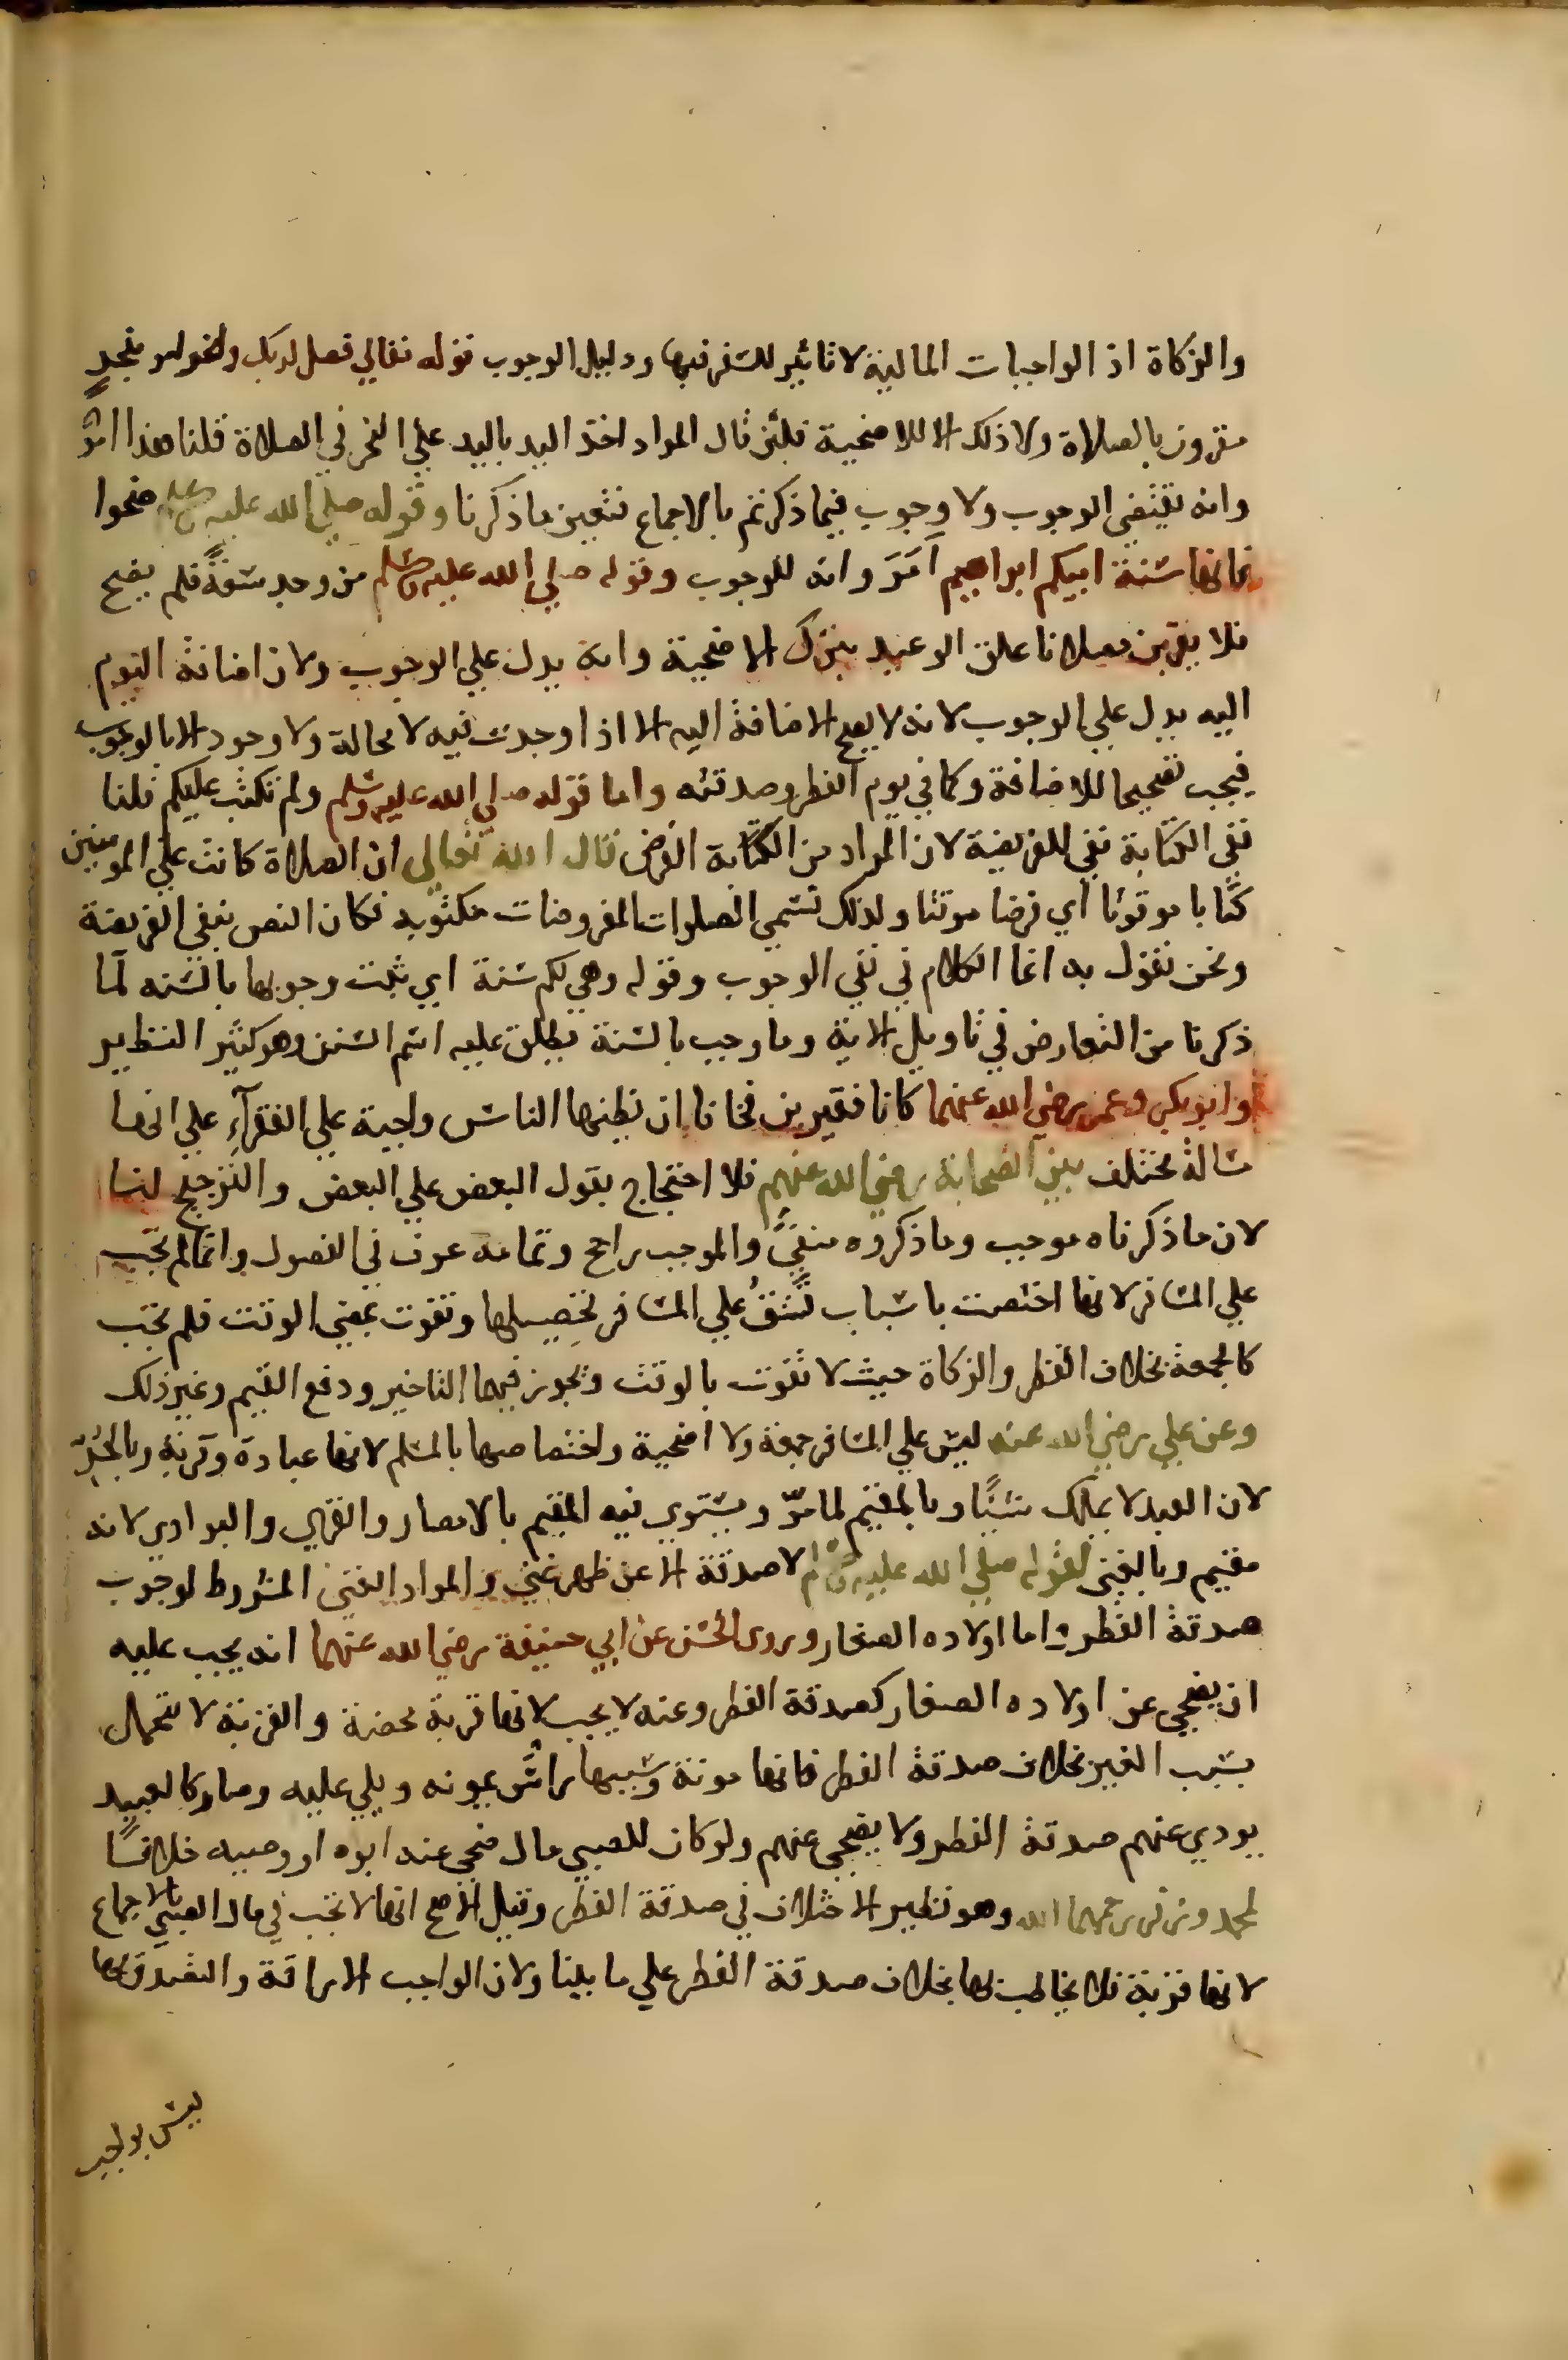 والزكاة اذ الواجبات المالية لا تاثير للسفر فيها ودليل الوجوب قوله تعالي فصل لربك وانحر امر بنحر
مقرون بالصلاة ولا ذلك الا للاضحية فلئن قال المراد اخذ اليد باليد علي النحر في الصلاة قلنا هذا امرٌ
وانه يقتضي الوجوب ولا وجوب فيما ذكرتم بالاجماع فتعين ما ذكرنا وقوله صلي الله عليه وسلم ضحوا
فانها سنة ابيكم ابراهيم اَمَرَ وانه للوجوب وقوله صلي الله عليه وسلم من وجد سعةً فلم يضح
فلا يقربن مصلانا علق الوعيد بترك الاضحية وانه يدل علي الوجوب ولان اضافة اليوم
اليه يدل علي الوجوب لانه لا يصح الاضافة اليه الا اذا وجدت فيه لا محالة ولا وجود الا بالوجوب
فيجب تصحيحا للاضافة وكما في يوم الفطر وصدقته واما قوله صلي الله عليه وسلم ولم تكتب عليكم قلنا
نفي الكتابة نفي للفريضة لان المراد من الكتابة الفرض قال الله تعالي ان الصلاة كانت علي المومنين
كتابا موقوتا اي فرضا موقتا ولذلك تسمي الصلوات المفروضات مكتوبة فكان النص ينفي الفريضة
ونحن نقول به انما الكلام في نفي الوجوب وقوله وهي لكم سنة اي ثبت وجوبها بالسنه لما
ذكرنا من التعارض في تاويل الاية وما وجب بالسنة يطلق عليه اسم السنن وهو كثير النظير
وابو بكر وعمر رضي الله عنهما كانا فقيرين فخافا ان يظنها الناس واجبة علي الفقرآءِ علي انها
مسالة مختلف بين الصحابة رضي الله عنهم فلا احتجاج بقول البعض علي البعض والترجيح لنا
لان ما ذكرناه موجب وما ذكروه منفيٌّ والموجب راجح وتمامه عرف في الفصول وانما لم تجب
علي المسافر لانها اختصت باسباب تشقُّ علي المسافر تحصيلها وتفوت بمضي الوقت فلم تجب
كالجمعة بخلاف الفطر والزكاة حيث لا تفوت بالوقت ويجوز فيهما التاخير ودفع القيم وغير ذلك
وعن علي رضي الله عنه ليس علي المسافر جمعة ولا اضحية واختصاصها بالمسلم لانها عبادة وقربة وبالحُرّ
لان العبد لا يملك شيئًا وبالمقيم لما مرّ ويستوي فيه المقيم بالامصار والقري والبوادي لانه
مقيم وبالغني لقوله صلي الله عليه وسلم لا صدقة الا عن ظهر غني والمراد الغني المشروط لوجوب
صدقة الفطر واما اولاده الصغار وروى الحسن عن ابي حنيفة رضي الله عنهما انه يجب عليه
ان يضحي عن اولاده الصغار كصدقة الفطر وعنه لا يجب لانها قربة محضة والقربة لا تتحمل
بسبب الغير بخلاف صدقة الفطر فانها مونة وسببها راسٌ يمونه ويلي عليه وصار كالعبيد
يودي عنهم صدقة الفطر ولا يضحي عنهم ولو كان للصبي مال ضحي عنه ابوه او وصيه خلافًا
لمحمد وزفر رحمهما الله وهو نظير الاختلاف في صدقة الفطر وقيل الاصح انها لا تجب في مال الصبي بالاجماع
لانها قربة فلا يخاطب بها بخلاف صدقة الفطر علي ما بينا ولان الواجب الاراقة والتصدق بها
ليس بواجب